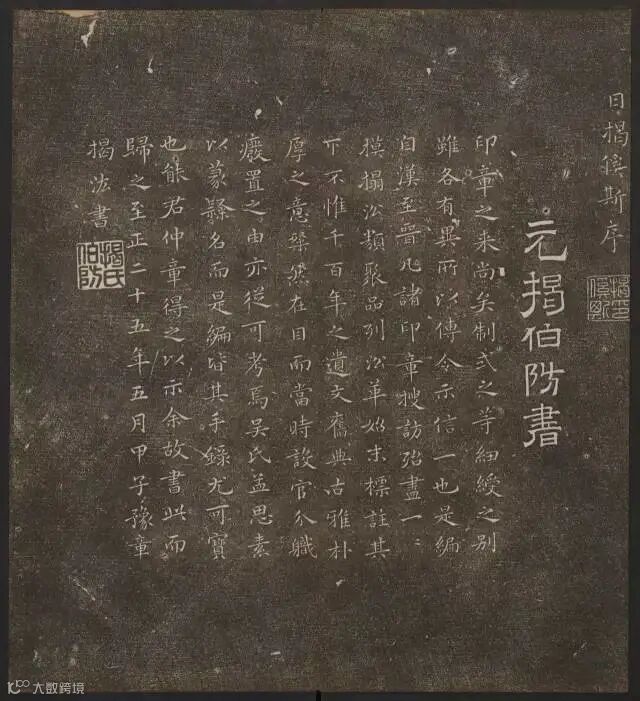 日揭傒斯序
揭傒斯
元揭伯防書
印章之来尚矣制式之等细綬之别
雖各有異所以傳令示信一也是編
自漢至晉凡諸印章搜訪殆盡一〻
摸搨沿類聚品列沿革始末標註其
下不惟千百年之遺文舊典古雅朴
厚之意犂然在目而當時設官分職
癈置之由亦從可考焉吴氏孟思素
以篆隸名而是編皆其手錄尤可寳
也熊君仲章得之以示余故書此而
歸之至正二十五年五月甲子豫章
揭汯書
揭氏伯防
大数跨境